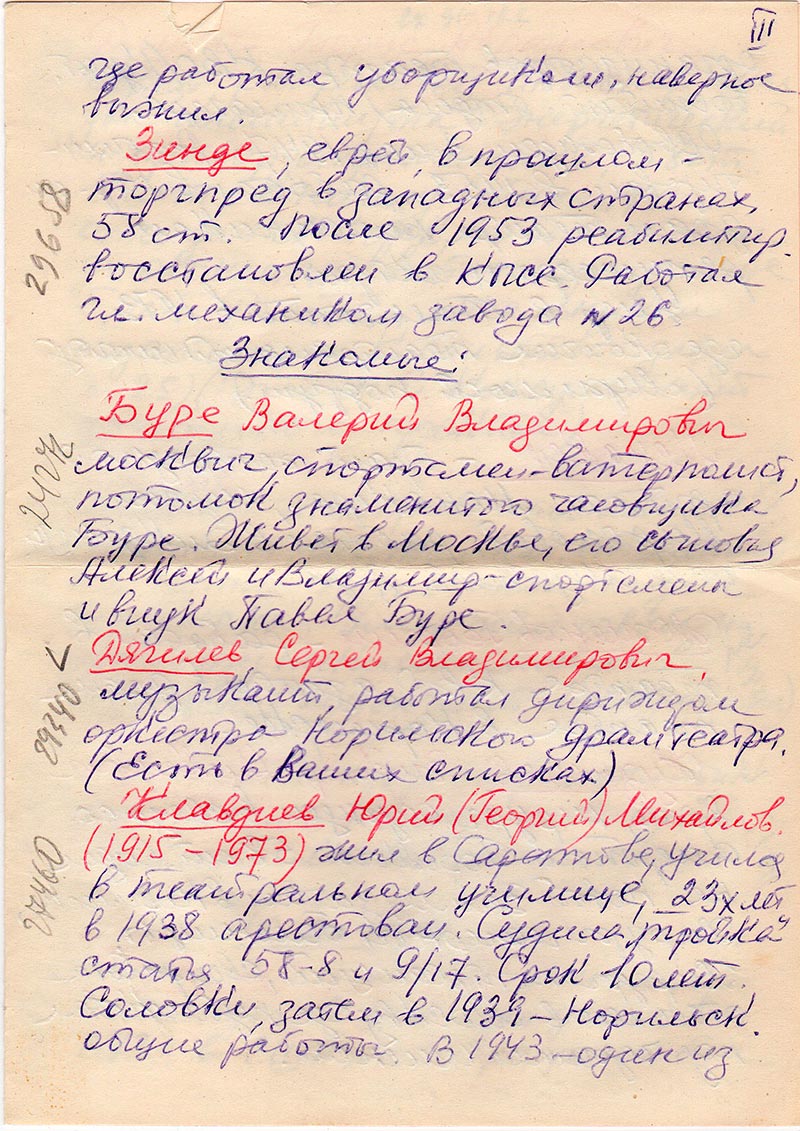 III
где работал уборщиком, наверное
выжил.
Зинде, еврей, в прошлом -
торгпред в западных странах,
58 ст. После 1953 реабилитир.
восстановлен в КПСС. Работал
гл. механиком завода N 26.
Знакомые:
Буре Валерий Владимирович
москвич, спортсмен-ватерполист,
потомок знаменитого часовщика
Буре. Живет в Москве, его сыновья
Алексей и Владимир - спортсмены
и внук Павел Буре.
Дягилев Сергей Владимирович,
музыкант, работал дирижером
оркестра Норильского драмтеатра.
(Есть в Ваших списках)
Клавдиев Юрий (Георгий) Михайлов.
(1915-1973) жил в Саратове, учился
в театральном училище, 23х лет
в 1938 арестован. Судила "тройка"
статья 58-8 и 9/17. Срок 10 лет.
Соловки, затем в 1939 - Норильск.
общие работы. В 1943 - один из
29658
29740
27460